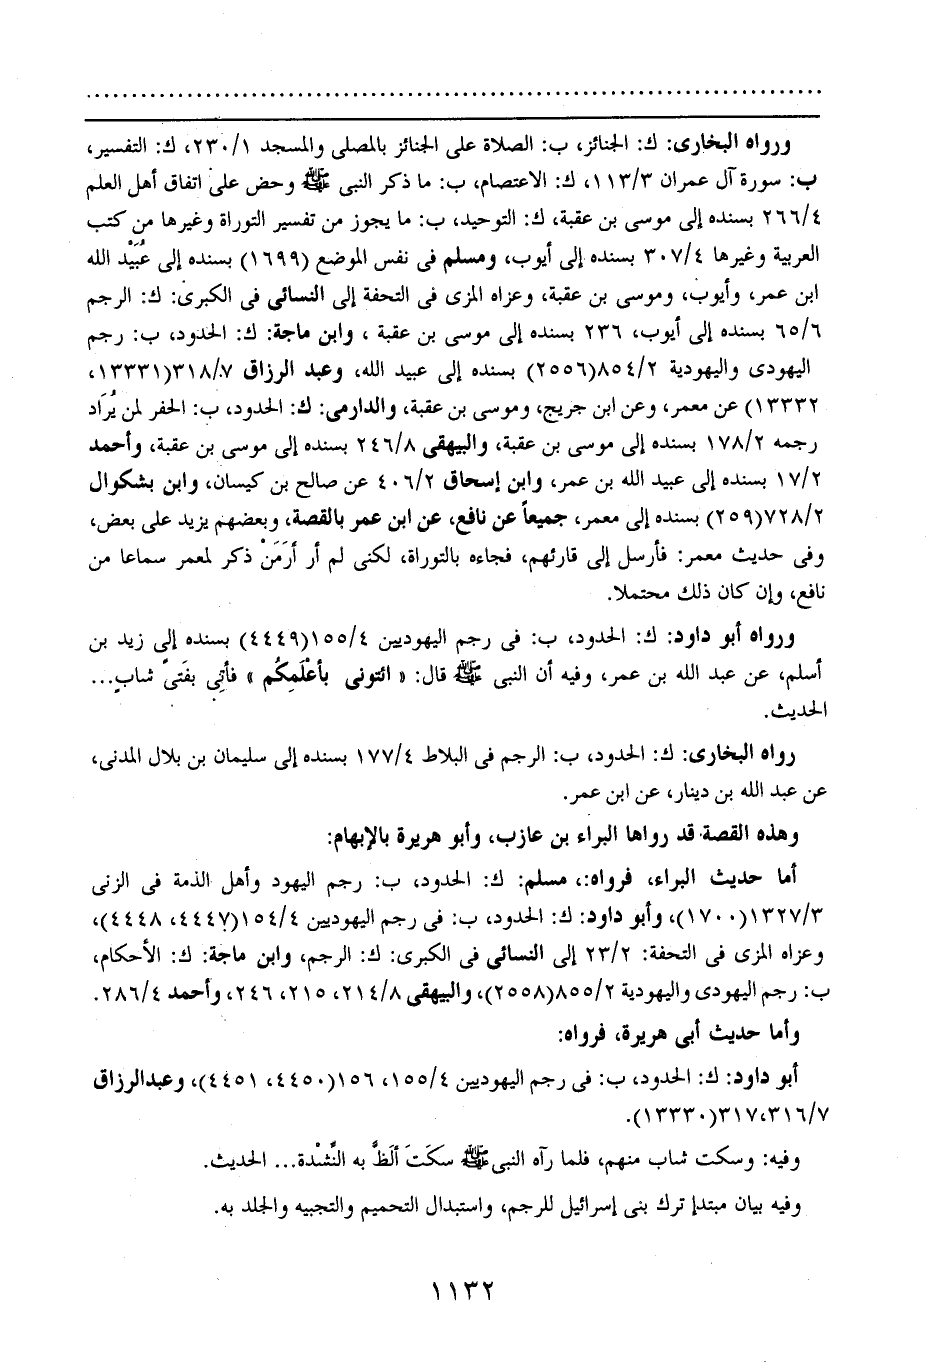 ورواه البخارى: ك: الجنائز، ب: الصلاة على الجنائز بالمصلى والمسجد ٢٣٠/١، ك: التفسير،
ب: سورة آل عمران ١١٣/٣، ك: الاعتصام، ب: ما ذكر النبى ﷺ وحض على اتفاق أهل العلم
٢٦٦/٤ بسنده إلى موسى بن عقبة، ك: التوحيد، ب: ما يجوز من تفسير التوراة وغيرها من كتب
العربية وغيرها ٣٠٧/٤ بسنده إلى أيوب، ومسلم فى نفس الموضع (١٦٩٩) بسنده إلى عُبَيْد الله
ابن عمر، وأيوب، وموسى بن عقبة، وعزاه المزى فى التحفة إلى النسائى فى الكبرى: ك: الرجم
٦٥/٦ بسنده إلى أيوب، ٢٣٦ بسنده إلى موسى بن عقبة ، وابن ماجة: ك: الحدود، ب: رجم
اليهودى واليهودية ٨٥٤/٢(٢٥٥٦) بسنده إلى عبيد الله، وعبد الرزاق ٣١٨/٧(١٣٣٣١،
١٣٣٣٢) عن معمر، وعن ابن جريج، وموسى بن عقبة، والدارمى: ك: الحدود، ب: الحفر لمن يُرَاد
رجمه ١٧٨/٢ بسنده إلى موسى بن عقبة، والبيهقى ٢٤٦/٨ بسنده إلى موسى بن عقبة، وأحمد
١٧/٢ بسنده إلى عبيد الله بن عمر، وابن إسحاق ٤٠٦/٢ عن صالح بن كيسان، وابن بشكوال
٧٢٨/٢(٢٥٩) بسنده إلى معمر، جميعاً عن نافع، عن ابن عمر بالقصة، وبعضهم يزيد على بعض،
وفى حديث معمر: فأرسل إلى قارئهم، فجاءه بالتوراة، لكنى لم أر أرَمَنْ ذكر لمعمر سماعا من
نافع، وإن كان ذلك محتملا.
ورواه أبو داود: ك: الحدود، ب: فى رجم اليهوديين ١٥٥/٤(٤٤٤٩) بسنده إلى زيد بن
أسلم، عن عبد الله بن عمر، وفيه أن النبى ﷺ قال: « ائتونى بأعْلَمِكُم » فأتِى بفَتىً شابٍ...
الحديث.
رواه البخارى: ك: الحدود، ب: الرجم فى البلاط ١٧٧/٤ بسنده إلى سليمان بن بلال المدنى،
عن عبد الله بن دينار، عن ابن عمر.
وهذه القصة قد رواها البراء بن عازب، وأبو هريرة بالإبهام:
أما حديث البراء، فرواه:، مسلم: ك: الحدود، ب: رجم اليهود وأهل الذمة فى الزنى
١٣٢٧/٣(١٧٠٠)، وأبو داود: ك: الحدود، ب: فى رجم اليهوديين ١٥٤/٤(٤٤٤٧، ٤٤٤٨)،
وعزاه المزى فى التحفة: ٢٣/٢ إلى النسائى فى الكبرى: ك: الرجم، وابن ماجة: ك: الأحكام،
ب: رجم اليهودى واليهودية ٨٥٥/٢(٢٥٥٨)، والبيهقى ٢١٤/٨، ٢١٥، ٢٤٦، وأحمد ٢٨٦/٤.
وأما حديث أبى هريرة، فرواه:
أبو داود: ك: الحدود، ب: فى رجم اليهوديين ١٥٥/٤، ١٥٦(٤٤٥٠، ٤٤٥١)، وعبدالرزاق
٣١٦/٧،٣١٧(١٣٣٣٠).
وفيه: وسكت شاب منهم، فلما رآه النبى ﷺ سكَتَ ألَظَّ به النَّشْدة... الحديث.
وفيه بيان مبتدإ ترك بنى إسرائيل للرجم، واستبدال التحميم والتجبيه والجلد به.
١١٣٢